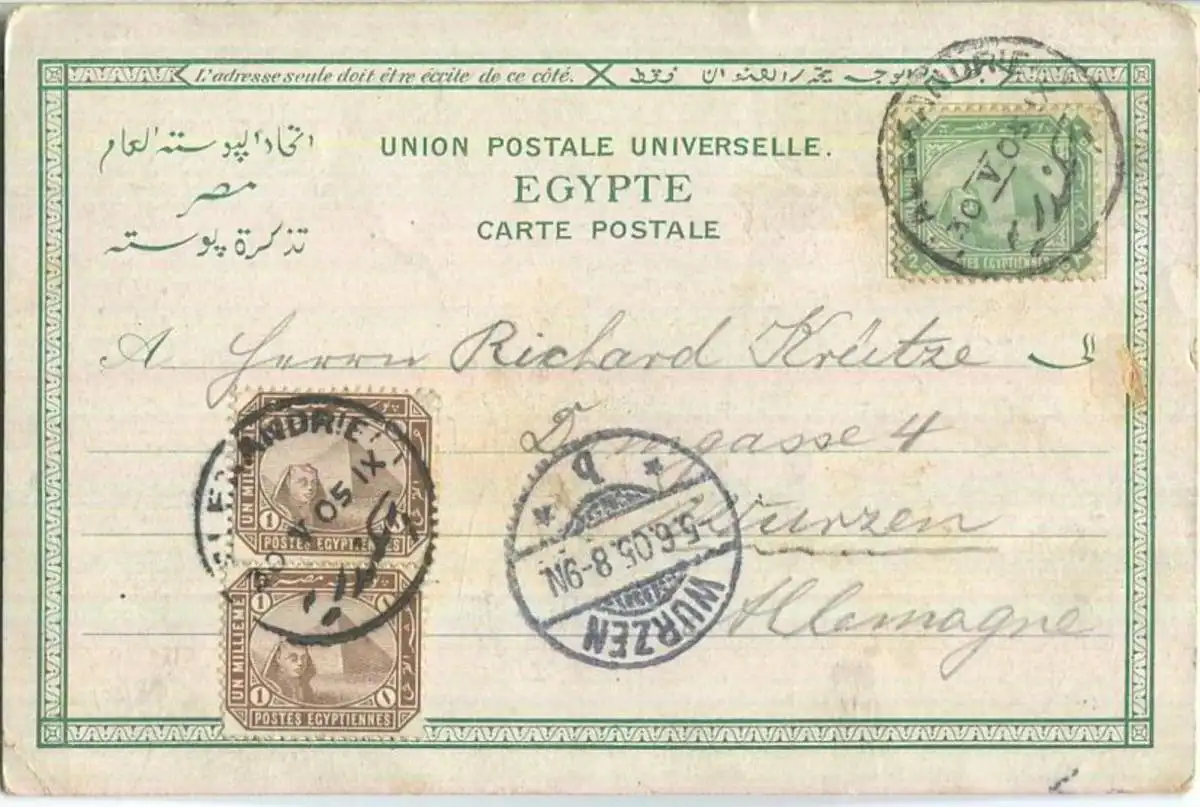 L'adresse seule doit être écrite de ce côté.
اتحاد البوسته العام
مصر
تذكرة بوسته
UNION POSTALE UNIVERSELLE.
EGYPTE
CARTE POSTALE
ALEXANDRIE
30 V 05 IX
POSTES EGYPTIENNES
A Herrn Richard Kreutze الى
Domgasse 4
Wurzen
Allemagne
ANDRIE
V 05 IX
UN MILLIEME
1
POSTES EGYPTIENNES
UN MILLIEME
1 1
1 1
POSTES EGYPTIENNES
b
5.6.05.8-9N.
WURZEN